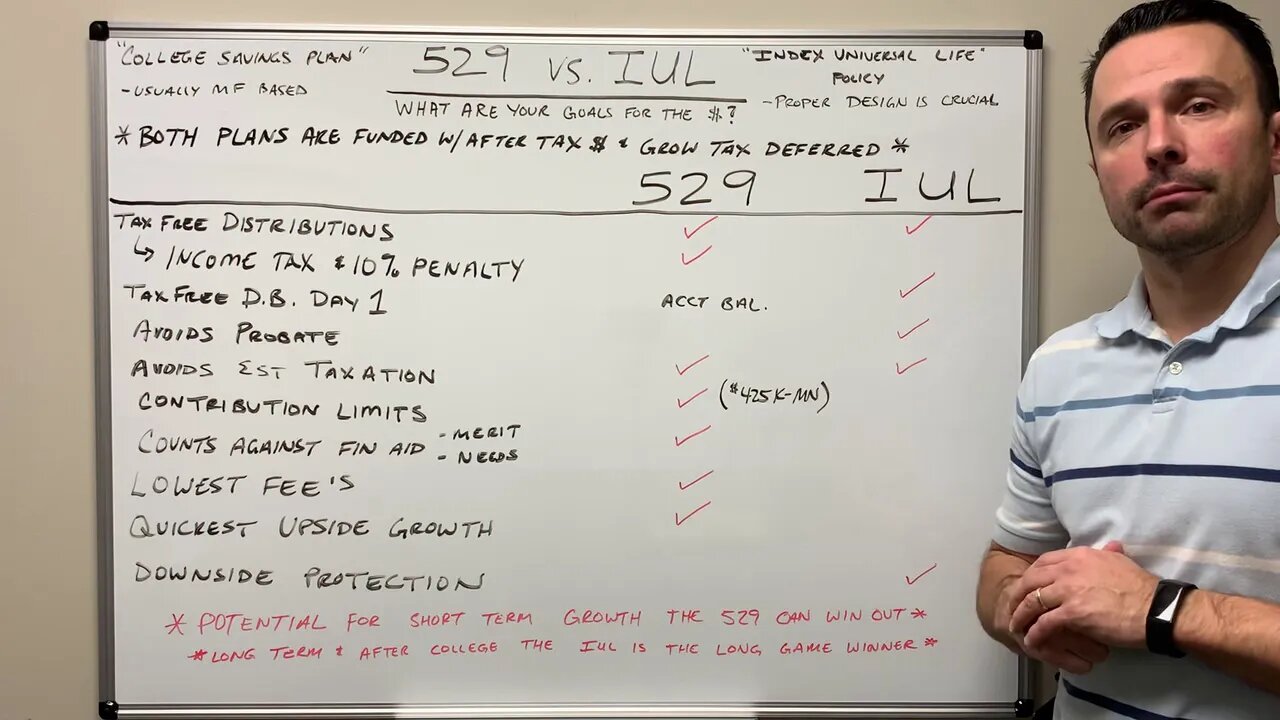 "COLLEGE SAVINGS PLAN"
- USUALLY MF BASED
529 VS. IUL
WHAT ARE YOUR GOALS FOR THE $?
"INDEX UNIVERSAL LIFE"
POLICY
- PROPER DESIGN IS CRUCIAL
* BOTH PLANS ARE FUNDED W/ AFTER TAX $ & GROW TAX DEFERRED *
529 IUL
TAX FREE DISTRIBUTIONS ✓ ✓
↳ INCOME TAX & 10% PENALTY ✓
TAX FREE D.B. DAY 1 ACCT BAL. ✓
AVOIDS PROBATE ✓
AVOIDS EST TAXATION ✓ ✓
CONTRIBUTION LIMITS ✓ ($425K-MN)
COUNTS AGAINST FIN AID - MERIT - NEEDS ✓
LOWEST FEE'S ✓
QUICKEST UPSIDE GROWTH ✓
DOWNSIDE PROTECTION ✓
* POTENTIAL FOR SHORT TERM GROWTH THE 529 CAN WIN OUT *
* LONG TERM & AFTER COLLEGE THE IUL IS THE LONG GAME WINNER *